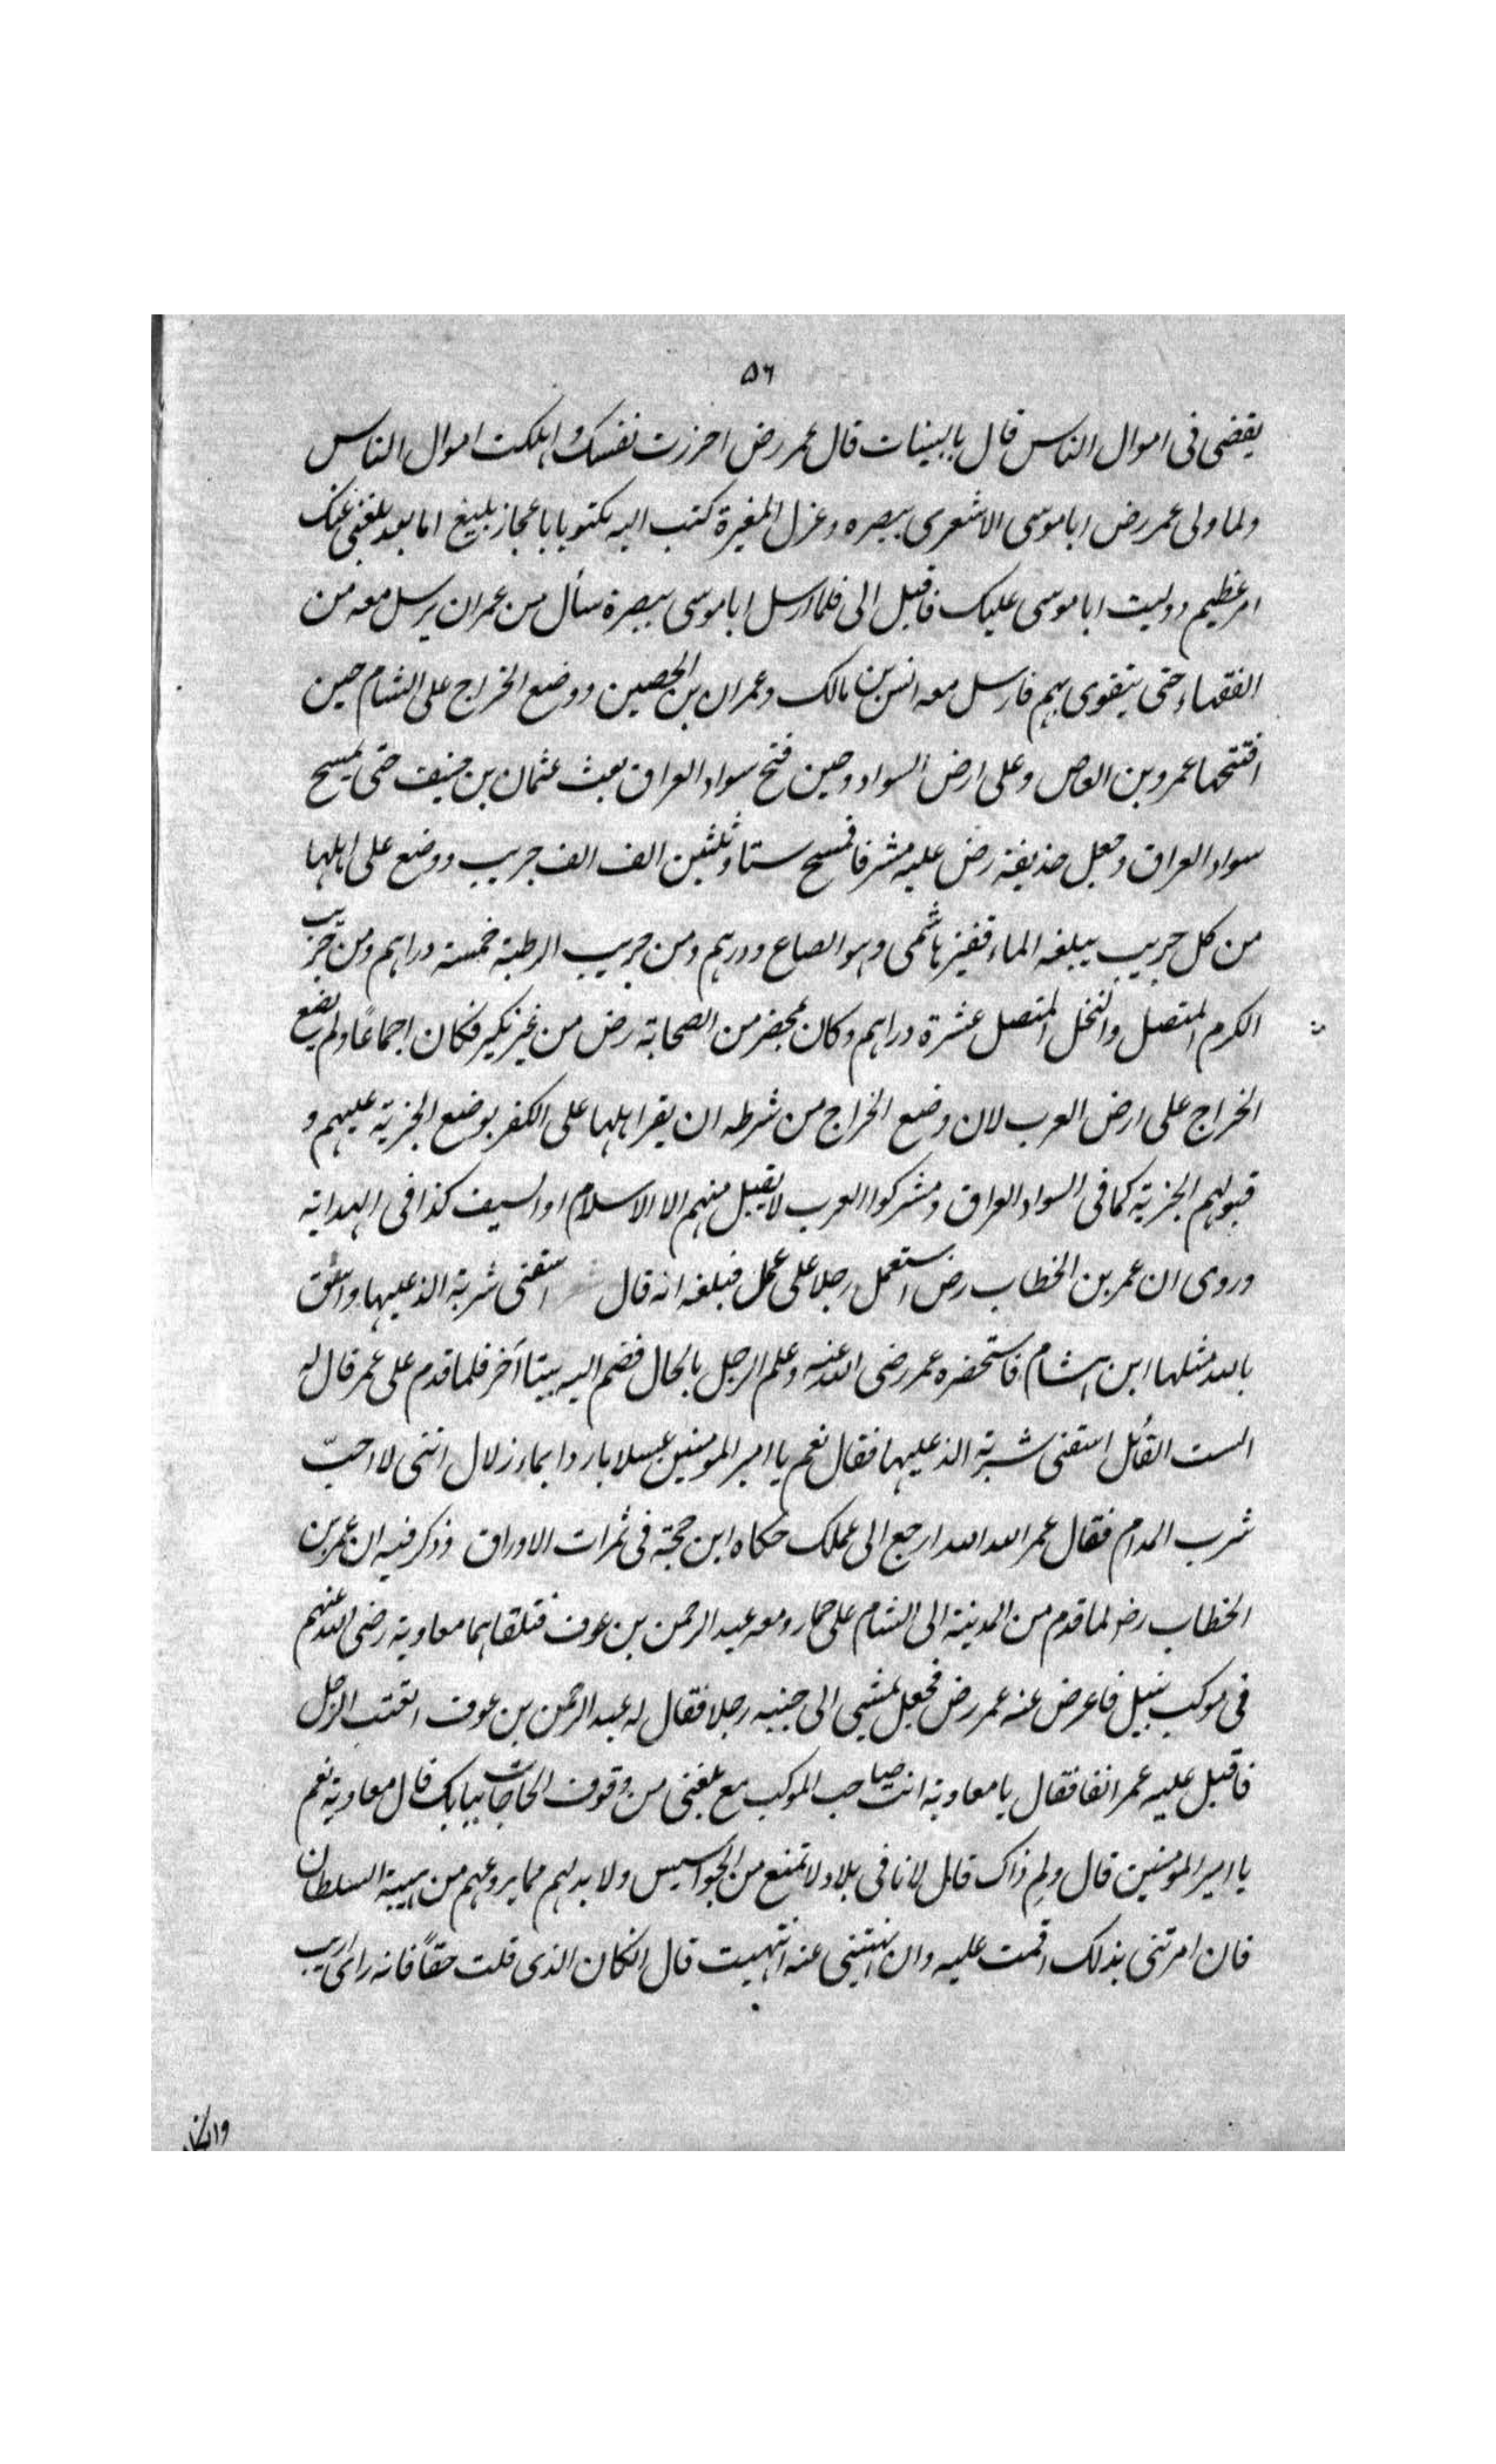 ٥٦
يقضى فى اموال الناس قال بالبينات قال عمر رض احرزت نفسك واهلكت اموال الناس
ولما ولى عمر رض ابا موسى الاشعرى ببصره وعزل المغيرة كتب اليه مكتوبا باعجاز بليغ اما بعد بلغنى عنك
امر عظيم ووليت ابا موسى عليك فاقبل الى فلما ارسل ابا موسى ببصرة سأل من عمر ان يرسل معه من
الفقهاء حتى يتقوى بهم فارسل معه انس بن مالك وعمران بن الحصين ووضع الخراج على الشام حين
افتتحها عمرو بن العاص وعلى ارض السواد وحين فتح سواد العراق بعث عثمان بن حنيف حتى يمسح
سواد العراق وجعل حذيفة رض عليه مشرفا فمسح ستا وثلثين الف الف جريب ووضع على اهلها
من كل جريب يبلغه الماء قفيز هاشمى وهو الصاع ودرهم ومن جريب الرطبة خمسة دراهم ومن جريب
الكرم المتصل والنخل المتصل عشرة دراهم وكان بمحضر من الصحابة رض من غير نكير فكان اجماعًا ولم يضع
الخراج على ارض العرب لان وضع الخراج من شرطه ان يقر اهلها على الكفر بوضع الجزية عليهم و
قبولهم الجزية كما فى السواد العراق ومشركوا العرب لا يقبل منهم الا الاسلام او السيف كذا فى الهداية
وروى ان عمر بن الخطاب رض استعمل رجلا على عمل فبلغه انه قال اسقنى شربة الذ عليها واسق
بالله مثلها ابن هشام فاستحضره عمر رضى الله عنه وعلم الرجل بالحال فضم اليه بيتا آخر فلما قدم على عمر قال له
الست القائل اسقنى شربة الذ عليها فقال نعم يا امير المومنين عسلا باردا بماء زلال اننى لا احبّ
شرب المدام فقال عمر الله الله ارجع الى عملك حكاه ابن حجة فى ثمرات الاوراق وذكر فيه ان عمر بن
الخطاب رض لما قدم من المدينة الى الشام على حمار ومعه عبد الرحمن بن عوف فتلقاهما معاوية رضى الله عنهم
فى موكب نبيل فاعرض عنه عمر رض فجعل يمشى الى جنبه رجلا فقال له عبد الرحمن بن عوف اتعبت الرجل
فاقبل عليه عمر انفا فقال يا معاوية انت صاحب الموكب مع بلغنى من وقوف الحاجات ببابك قال معاوية نعم
يا امير المومنين قال ولم ذاك قال لانا فى بلاد لا تمنع من الجواسيس ولا بد لهم مما يروعهم من هيبة السلطان
فان امرتنى بذلك اقمت عليه وان نهيتنى عنه انتهيت قال انكان الذى قلت حقًا فانه راى اريب
وانكان